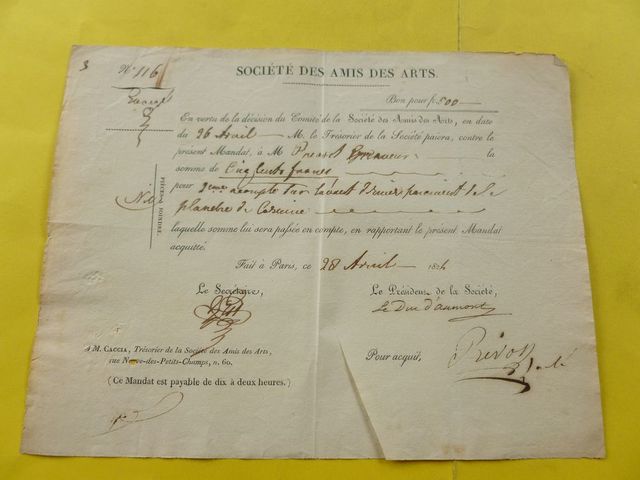 3
N° 116
SOCIÉTÉ DES AMIS DES ARTS.
Bon pour f. 500
En vertu de la décision du Comité de la Société des Amis des Arts, en date
du 26 Avril M. le Trésorier de la Société paiera, contre le
présent Mandat, à M Prevost Graveur la
somme de Cinq Cents francs
pour 2eme acompte sur le
planche de
laquelle somme lui sera passée en compte, en rapportant le présent Mandat
acquitté.
PIÈCES A JOINDRE.
Fait à Paris, ce 28 Avril 182
Le Secrétaire,
Le Président de la Société,
Le Duc d'aumont
A M. CACCIA, Trésorier de la Société des Amis des Arts,
rue Neuve-des-Petits-Champs, n. 60.
Pour acquit,
Prévost
(Ce Mandat est payable de dix à deux heures.)